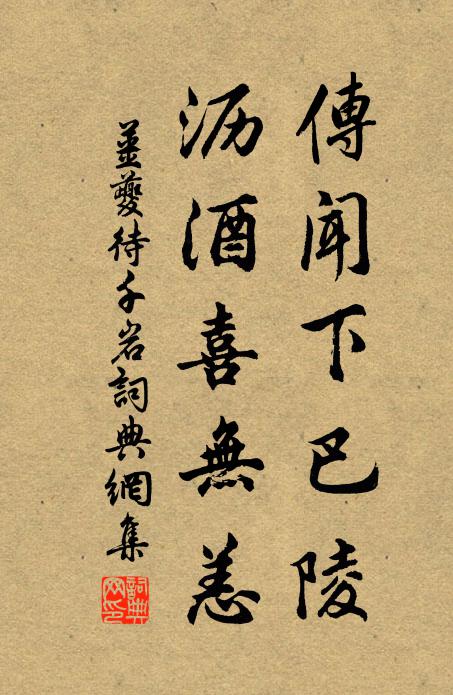 傳闻下巴陵
沥酒喜無恙
姜夔待千岩詞典網集
詞典網印